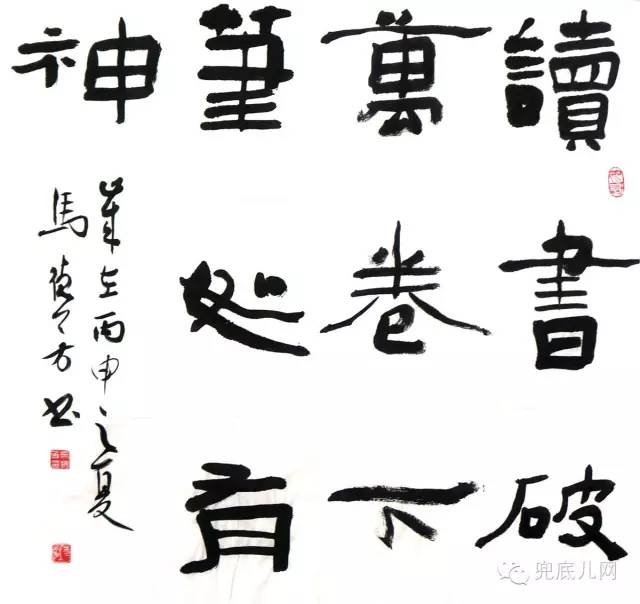 讀書破
萬卷下
筆如有
神
歲在丙申之夏
馬 方书
兜底儿网